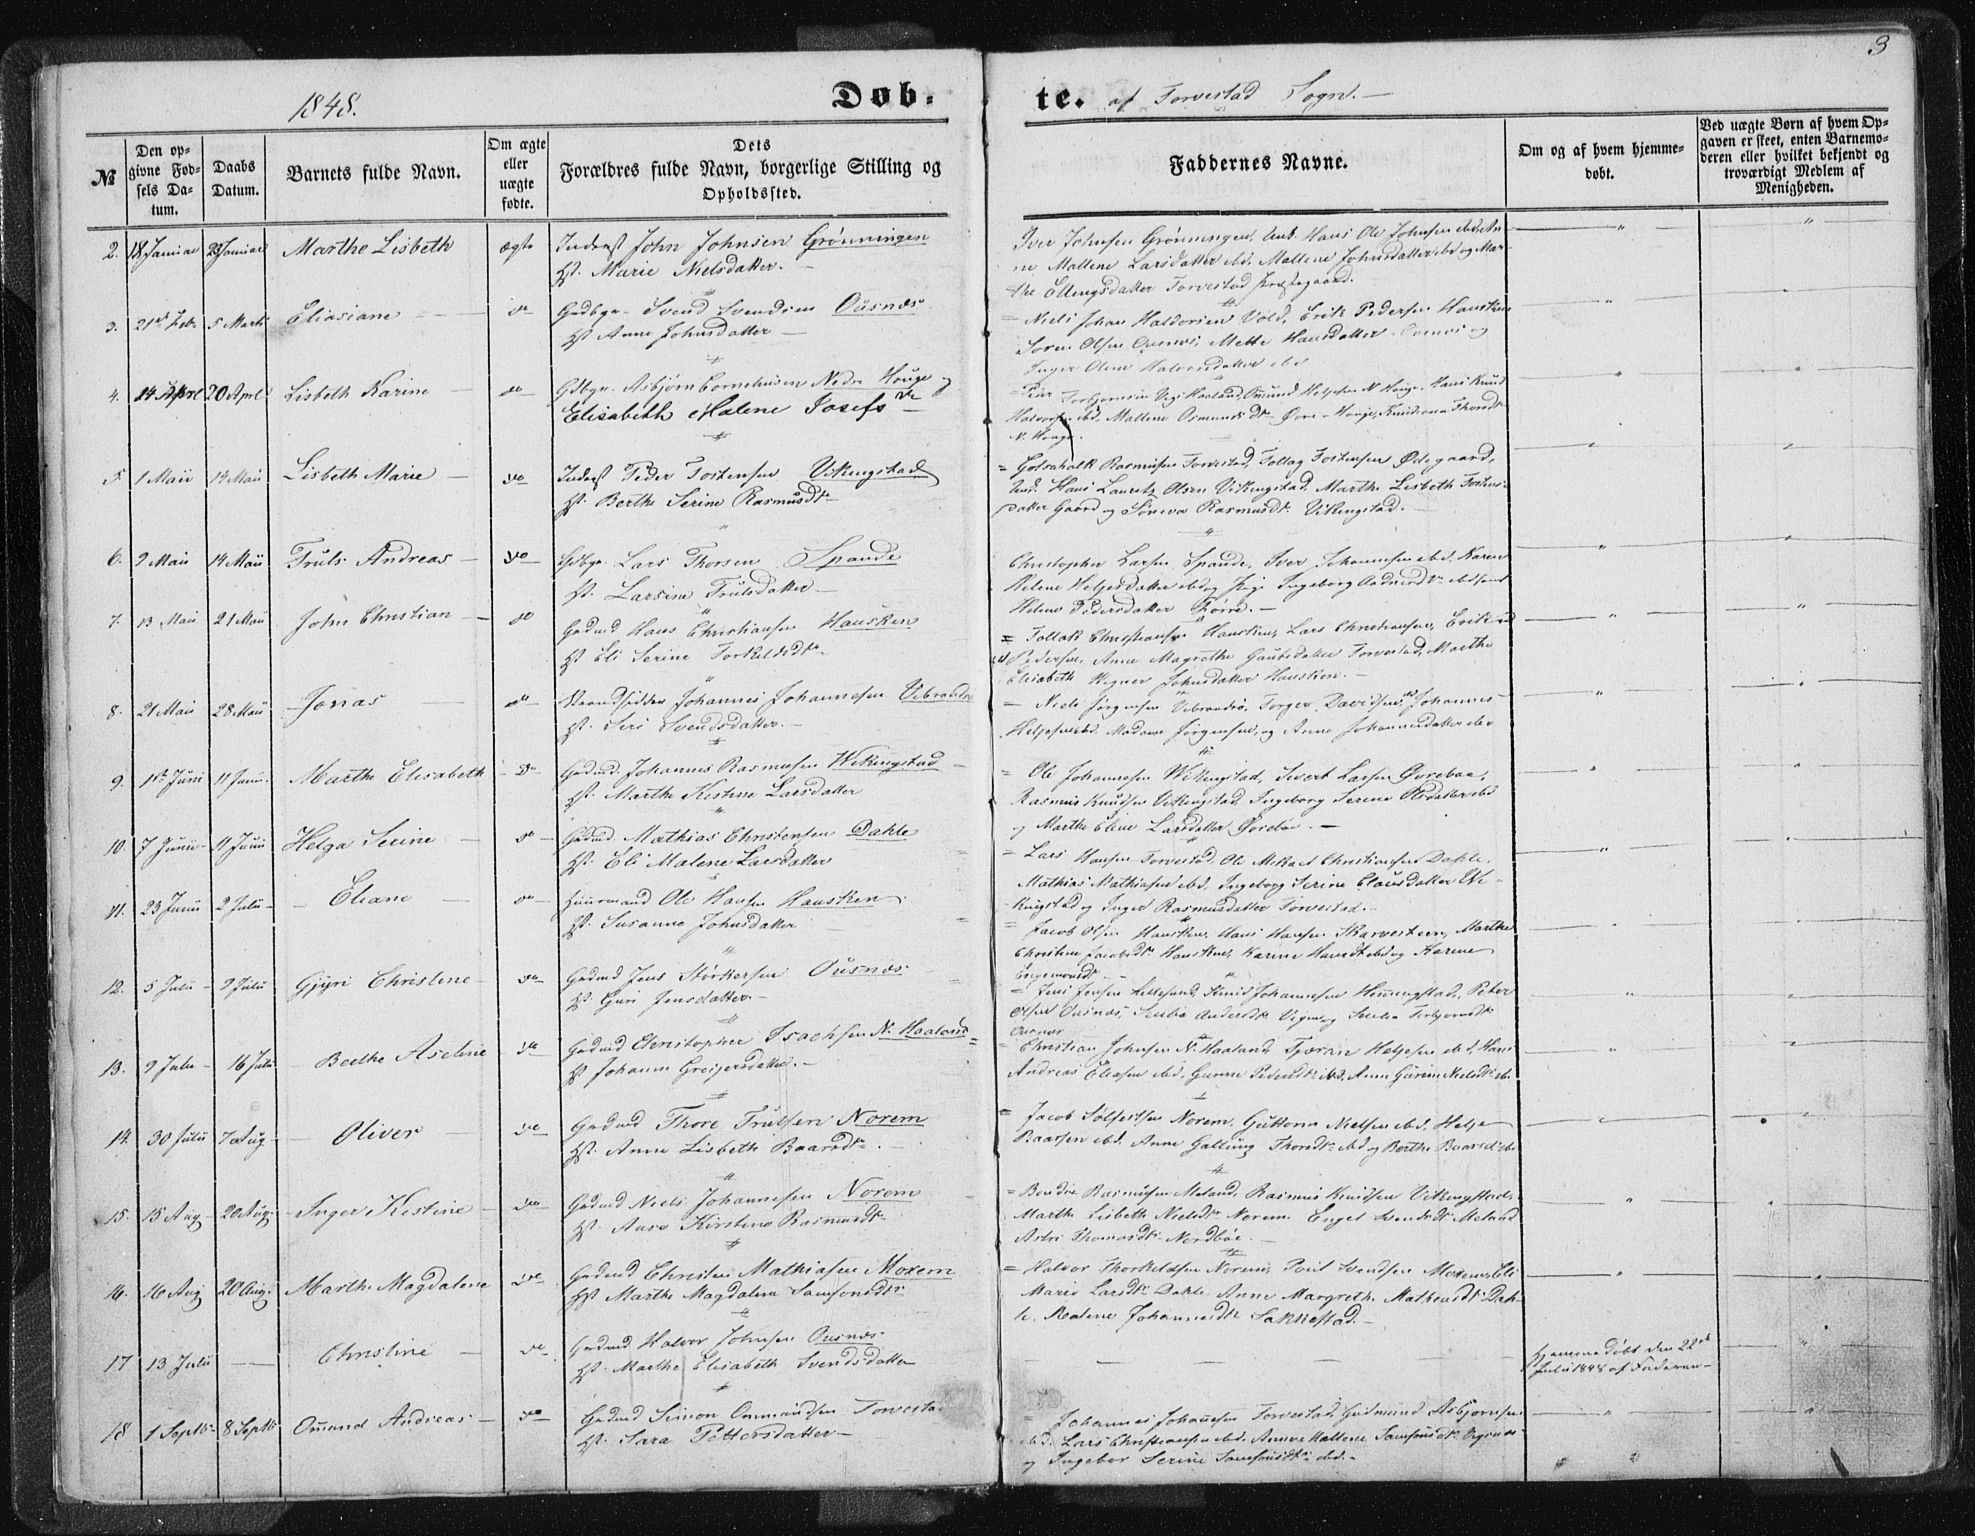 3
1848.
Døb-te. af Torvestad Sogn.
№
Den op-
givne Fød-
sels Da-
tum.
Daabs
Datum.
Barnets fulde Navn.
Om ægte
eller
uægte
fødte.
Dets
Forældres fulde Navn, borgerlige Stilling og
Opholdssted.
Faddernes Navne.
Om og af hvem hjemme-
døbt.
Ved uægte Børn af hvem Op-
gaven er skeet, enten Barnemo-
deren eller hvilket bekjendt og
troværdigt Medlem af
Menigheden.
2. 18 Januar 23 Januar Marthe Lisbeth ægte Inderst John Johnsen Grønningen
Hst. Marie Nielsdatter.
Iver Johnsen Grønningen, Hans Ole Johnsen
Mallene Larsdatter ibd. Mallene Johnsdatter ibd og Mar-
the Ellingsdatter Torvestad Præstegaard.
3. 21de Febr 5 Marts Eliasiane do Gdbgr. Svend Svendsen Ousnæs
Hst Anne Johnsdatter
Niels Johan Haldorsen Vold, Erik Pedersen Hausken
Søren Olsen Ousnæs, Mette Hansdatter Ousnæs og
Inger Olene Halvorsdatter ibd
4. 14 April 20 April Lisbeth Karine do Gdbgr. Asbjørn Cornelius­en Nedre Houge og
Elisabeth Malene Josefsdtr
Haaland, Omund Helgesen N Houge, Hans Knud
Haldorsen ibd, Mallene Osmundsdtr Øvre Houge,
N. Houge.
5. 1 Maii 14 Maii Lisbeth Marie do Inderst Peder Tostensen Vikingstad
Hst. Berthe Serine Rasmusdtr
Gotschalk Rasmusen Torvestad, Tollag Tostensen Ødegaard,
Hans Lauritz Olsen Vikingstad, Marthe Lisbeth Tostens-
datter Gaard og Rasmusdtr Vikingstad.
6. 9 Maii 14 Maii Truls Andreas do Gdbgr. Lars Thorsen Spande
Hst. Larsine Trulsdatter
Christopher Larsen Spande, Iver Johannesen ibd. Karen
Helene Helgesdatter ibd og Pige Ingeborg
Helene Pedersdatter
7. 13 Maii 21 Maii John Christian do Grdmd Hans Christiansen Hausken
Hst Eli Serine Torkeldsdtr.
Tollak Christiansen Hausken, Lars Christiansen, Erik
Pedersen, Anne Magrethe Torvestad, Marthe
Elisabeth Johnsdatter Hausken.
8. 21 Maii 28 Maii Jonas do Strandsidder Johannes Johannesen Vibrandsø
Hst. Seri Svendsdatter.
Niels Jørgensen Vibrandsø, Torger Davidsen, Johannes
Helgesen ibd. Madame Jørgensen, og Anne Johannsdatter ibd
9. 1ste Juni 11 Junii Marthe Elisabeth do Grdmd. Johannes Rasmusen Wikingstad
Hst. Marthe Kistine Larsdatter
Ole Johannesen Wikingstad, Sivert Larsen Øvrebøe,
Rasmus Knudsen Vikingstad, Ingeborg Serine Olsdatter ibd
og Marthe Eline Larsdatter Øvrebøe.
10. 7 Junii 11 Junii Helga Serine do Grdmd. Mathias Christensen Dahle
Hst. Eli Malene Larsdatter
Lars Hansen Torvestad, Ole Mikal Christiansen Dahle,
Mathias Mathiasen ibd, Ingeborg Serine Clausdatter Wi-
kingstad og Inger Rasmusdatter Torvestad.
11. 23 Junii 2 Julii Eliane do Huusmand Ole Hansen Hausken
Hst. Susanne Johnsdatter
Jacob Olsen Hausken, Hans Hansen Skarvesteen, Marthe
Christine Jacobsdtr Hausken, Karine ibd og Karine
12. 5 Julii 9 Julii Gjyri Christine do Grdmd Jens Størkersen Ousnæs
Hst. Guri Jensdatter.
Jens Jensen Knud Johannesen Hemmingstad, Peter
Olsen Ousnæs, Andersdtr og
Ousnæs
13. 9 Julii 16 Julii Berthe Aseline do Grdmd Christopher Isachsen N. Haaland
Hst Johanne Greigersdatter.
Christian Johnsen N. Haaland, Helgesen ibd, Hans
Andreas Eliasen ibd, Gunne Pedersdtr ibd, Anne Gurine Nielsdtr ibd
14. 30 Julii 7 Aug Oliver do Grdmd Thore Trulsen Norem
Hst. Anne Lisbeth Baarsdtr.
Jacob Sølfestsen Norem, Guttorm Nielsen ibd, Helge
Baarsen ibd, Anne Thorsdtr ibd og Berthe Baarsdtr ibd
15. 15 Aug 20 Aug. Inger Kistine do Grdmd Niels Johannesen Norem
Hst. Aase Kirstine Rasmusdtr
Rasmusen Meland, Rasmus Knudsen Vikingstad,
Marthe Lisbeth Nielsdtr Norem Engel Svendsdtr Meland
Astri Thomasdtr Nordbøe.
16. 16 Aug 20 Aug. Marthe Magdalene do Grdmd Christen Mathiasen Norem
Hst Marthe Magdalena Samsonsdtr
Halvor Thorkeldsen Norem, Svendsen Norem, Eli
Marie Larsdtr Dahle Anne Margrethe Mathiasdtr Dah-
le, Malene Johannesdtr Sakkestad.
17 13 Julii Christine do Grdmd Halvor Johnsen Ousnæs
Hst. Marthe Elisabeth Svendsdatter
Hjemmedøbt den 22de
Julii 1848 af Faderen
18 1 Septbr 8 Septbr Omund Andreas do Grdmd Simon Ommundsen Torvestad
Hst. Sara Pettersdatter
Johannes Johannesen Torvestad, Gudmund Asbjørnsen
ibd. Lars Christiansen ibd. Anne Mallene Samsonsdtr
og Ingebor Serine Samsonsdtr ibd.